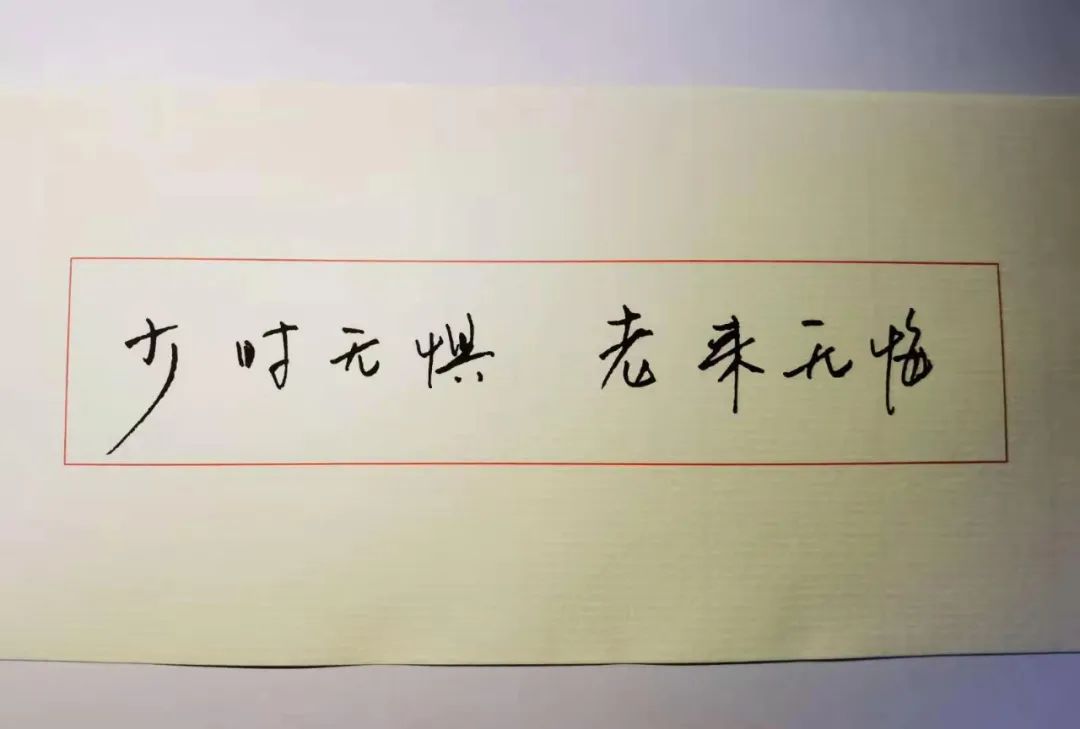 少时无惧 老来无悔